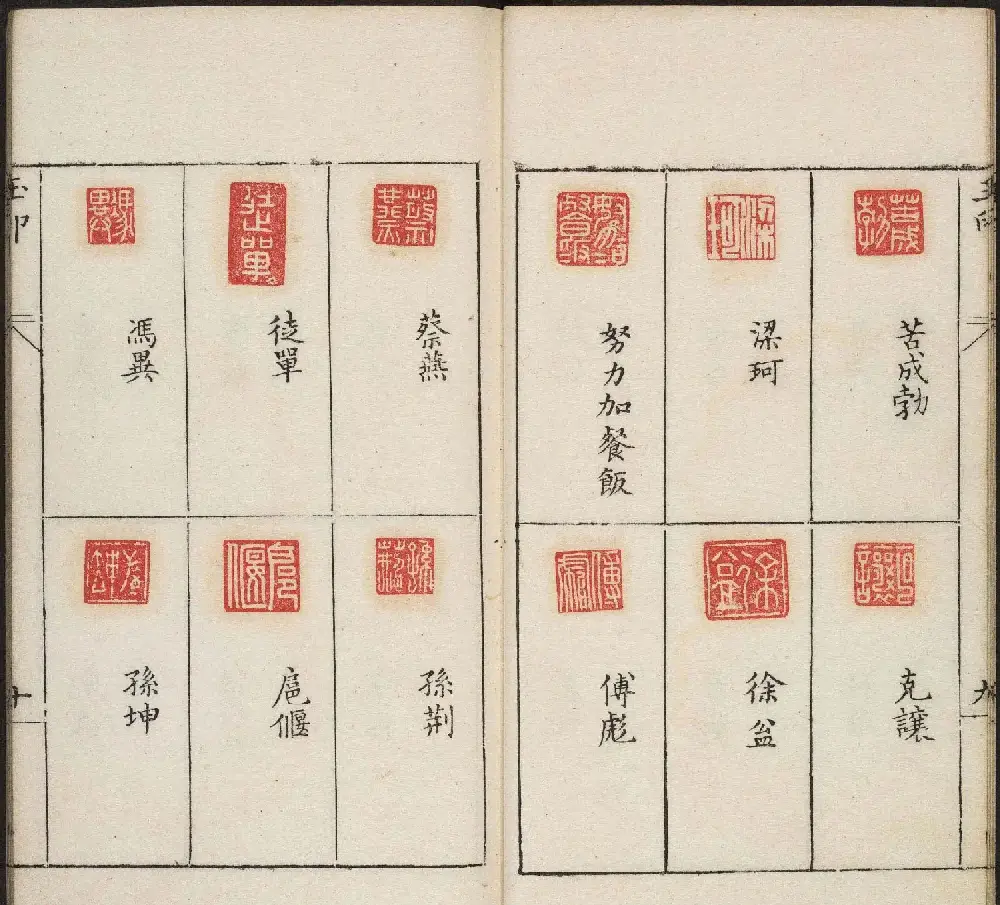 玉印
苦成勃
梁珂
努力加餐飯
克讓
徐盆
傅彪
九
蔡燕
徒單
馮異
孫荆
扈偃
孫坤
玉印
十